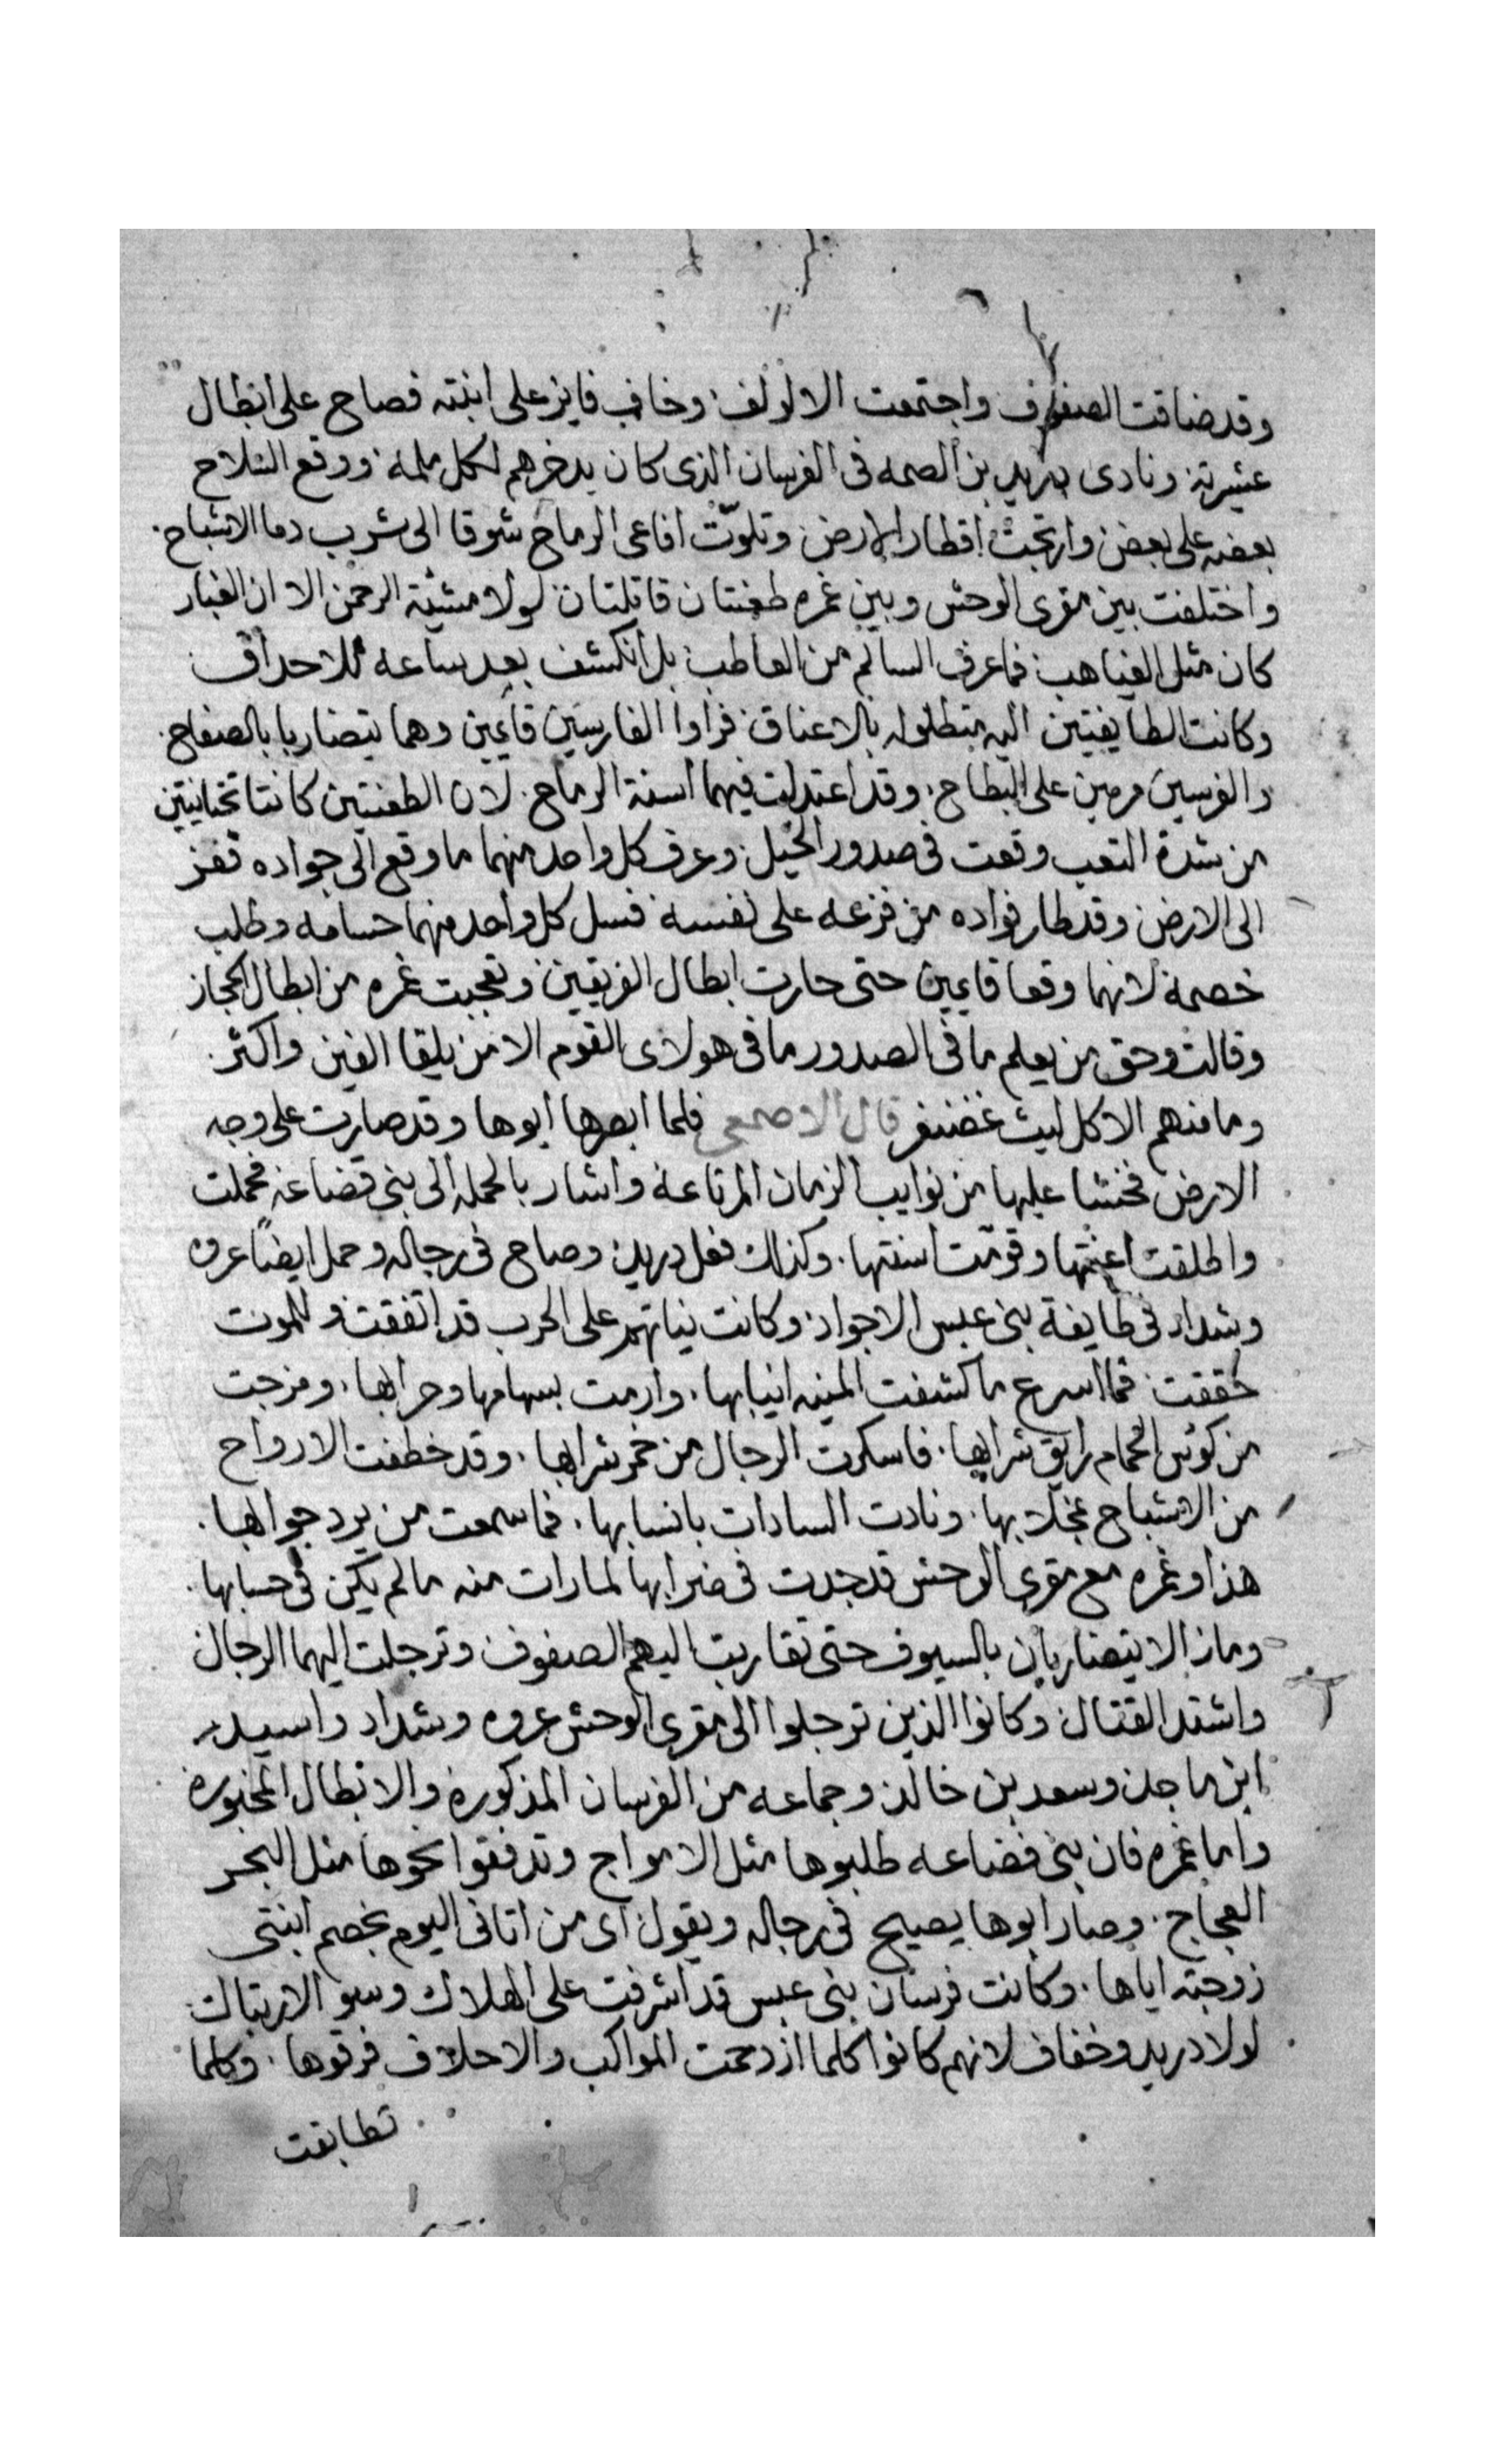 وقد ضاقت الصفوف واجتمعت الالوف وخاف فايز على ابنته فصاح على ابطال
عشيرته ونادى بدريد بن الصمه فى الفرسان الذى كان يدخرهم لكل ملمه ووقع السلاح
بعضه على بعض وارتجت اقطار الارض وتلوّت افاعى الرماح شوقا الى شرب دما الاشباح
واختلفت بين مقرى الوحش وبين غمره طعنتان قاتلتان لولا مشية الرحمن الا ان الغبار
كان مثل الغياهب فما عرف السالم من العاطب بل انكشف بعد ساعه للاحداق
وكانت الطايفتين اليه متطلوله بالاعناق فراوا الفارسين قايمين وهما يتضاربا بالصفاح
والفرسين مرمين على البطاح وقد اعتدلت فيهما اسنة الرماح لان الطعنتين كانتا تحتانيتين
من شدة التعب وقعت فى صدور الخيل وعرف كل واحد منهما ما وقع الى جواده فقفز
الى الارض وقد طار فواده من فزعه على نفسه فسل كل واحد منهما حسامه وطلب
خصمه لانهما وقعا قايمين حتى حارت ابطال الفريقين وتعجبت غمره من ابطال الحجاز
وقالت وحق من يعلم ما فى الصدور ما فى هولاى القوم الا من يلقا الفين واكثر
وما منهم الا كل ليث غضنفر قال الاصمعى فلما ابصرها ابوها وقد صارت على وجه
الارض فخشا عليها من نوايب الزمان المرتاعة واشار بالحمله الى بنى قضاعه فحملت
واطلقت اعنتها وقومت اسنتها وكذلك فعل دريد وصاح فى رجاله وحمل ايضًا عروه
وشداد فى طايفة بنى عبس الاجواد وكانت نياتهم على الحرب قد اتفقت وللموت
حققت فما اسرع ما كشفت المنيه انيابها وارمت بسهامها وحرابها ومزجت
من كوس الحمام رايق شرابها فاسكرت الرجال من خمر شرابها وقد خطفت الارواح
من الاشباح بمخلابها ونادت السادات بانسابها فما سمعت من يرد جوابها
هذا وغمره مع مقرى الوحش قد جدت فى ضرابها لما رات منه ما لم يكن فى حسابها
وما زالا يتضاربان بالسيوف حتى تقاربت اليهم الصفوف وترجلت اليهما الرجال
واشتد القتال وكانوا الذين ترجلوا الى مقرى الوحش عروه وشداد واسيد
ابن ماجد وسعد بن خالد وجماعه من الفرسان المذكورة والابطال المخبوره
واما غمره فان بنى قضاعه طلبوها مثل الامواج وتدفقوا نحوها مثل البحر
العجاج وصار ابوها يصيح فى رجاله ويقول اى من اتانى اليوم بخصم ابنتى
زوجته اياها وكانت فرسان بنى عبس قد اشرفت على الهلاك وسو الارتباك
لولا دريد وخفاف لانهم كانوا كلما ازدحمت المواكب والاحلاف فرقوها وكلما
تطابقت